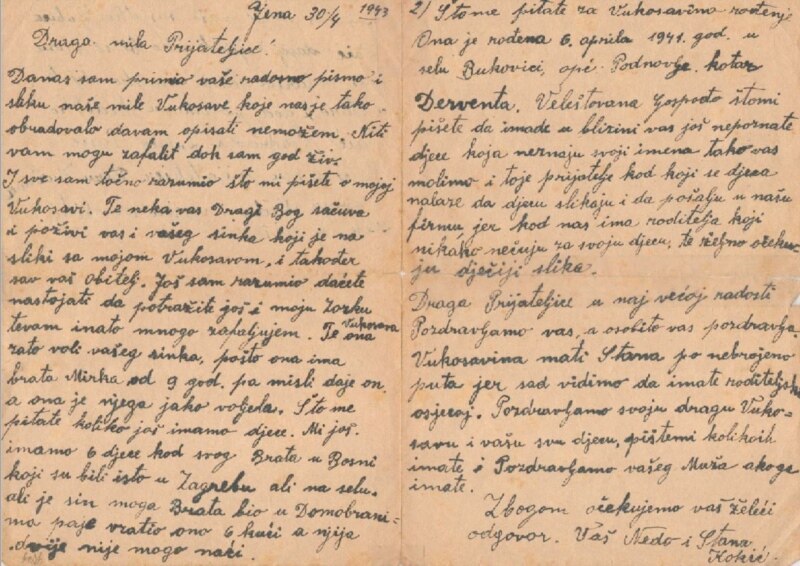 Jena 30/4 1943
Draga mila Prijateljice!
Danas sam primio vaše radosno pismo i
sliku naše mile Vukosave, koje nas je tako
obradovalo davam opisati nemožem. Niti
vam mogu zafalit doh sam god živ.
I sve sam točno razumio što mi pišete o mojoj
Vukosavi. Te neka vas Dragi Bog sačuva
i poživi vas i vašeg sinka koji je na
sliki sa mojom Vukosavom, i također
sav vaš Obitelj. Još sam razumio daćete
nastojati da potražite još i moju Zorku
tevam inato mnogo zafaljujem. Te ona Vukosava
zato voli vašeg sinka, pošto ona ima
brata Mirka od 9 god. pa misli daje on
a ona je njega jako voljela. Što me
pitate koliko još imamo djece. Mi još
imamo 6 djece kod svog Brata u Bosni
koji su bili isto u Zagrebu ali na selu.
ali je sin moga Brata bio u Domobrani-
ma paje vratio ono 6 kući a njija
dvije nije mogo naći.
2/ Što me pitate za Vukosavino rođenje
Ona je rođena 6. aprila 1941. god. u
selu Bukovici, opć. Podnovlje kotar
Derventa. Veleštovana Gospođo štomi
pišete da imade u blizini vas još nepoznate
djece koja neznaju svoji imena tako vas
molimo i toje prijatelje kod koji se djeca
nalaze da djecu slikaju i da pošalju u našu
firmu jer kod nas ima roditelja koji
nikako nečuju za svoju djecu, te željno očeku-
ju dječiji slika.
Draga Prijateljice u naj većoj radosti
Pozdravljamo vas, a osobito vas pozdravlja
Vukosavina mati Stana po nebrojeno
puta jer sad vidimo da imate roditeljski
osjećaj. Pozdravljamo svoju dragu Vuko-
savu i vašu svu djecu, pištemi kolikoih
imate i Pozdravljamo vašeg Muža ako ga
imate.
Zbogom očekujemo vaš želeći
odgovor. Vaš Nedo i Stana
Kokić